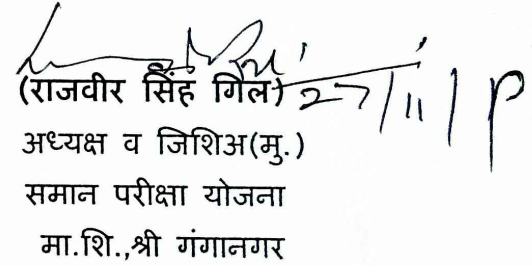 (राजवीर सिंह गिल) 27/11/
अध्यक्ष व जिशिअ(मु.)
समान परीक्षा योजना
मा.शि.,श्री गंगानगर